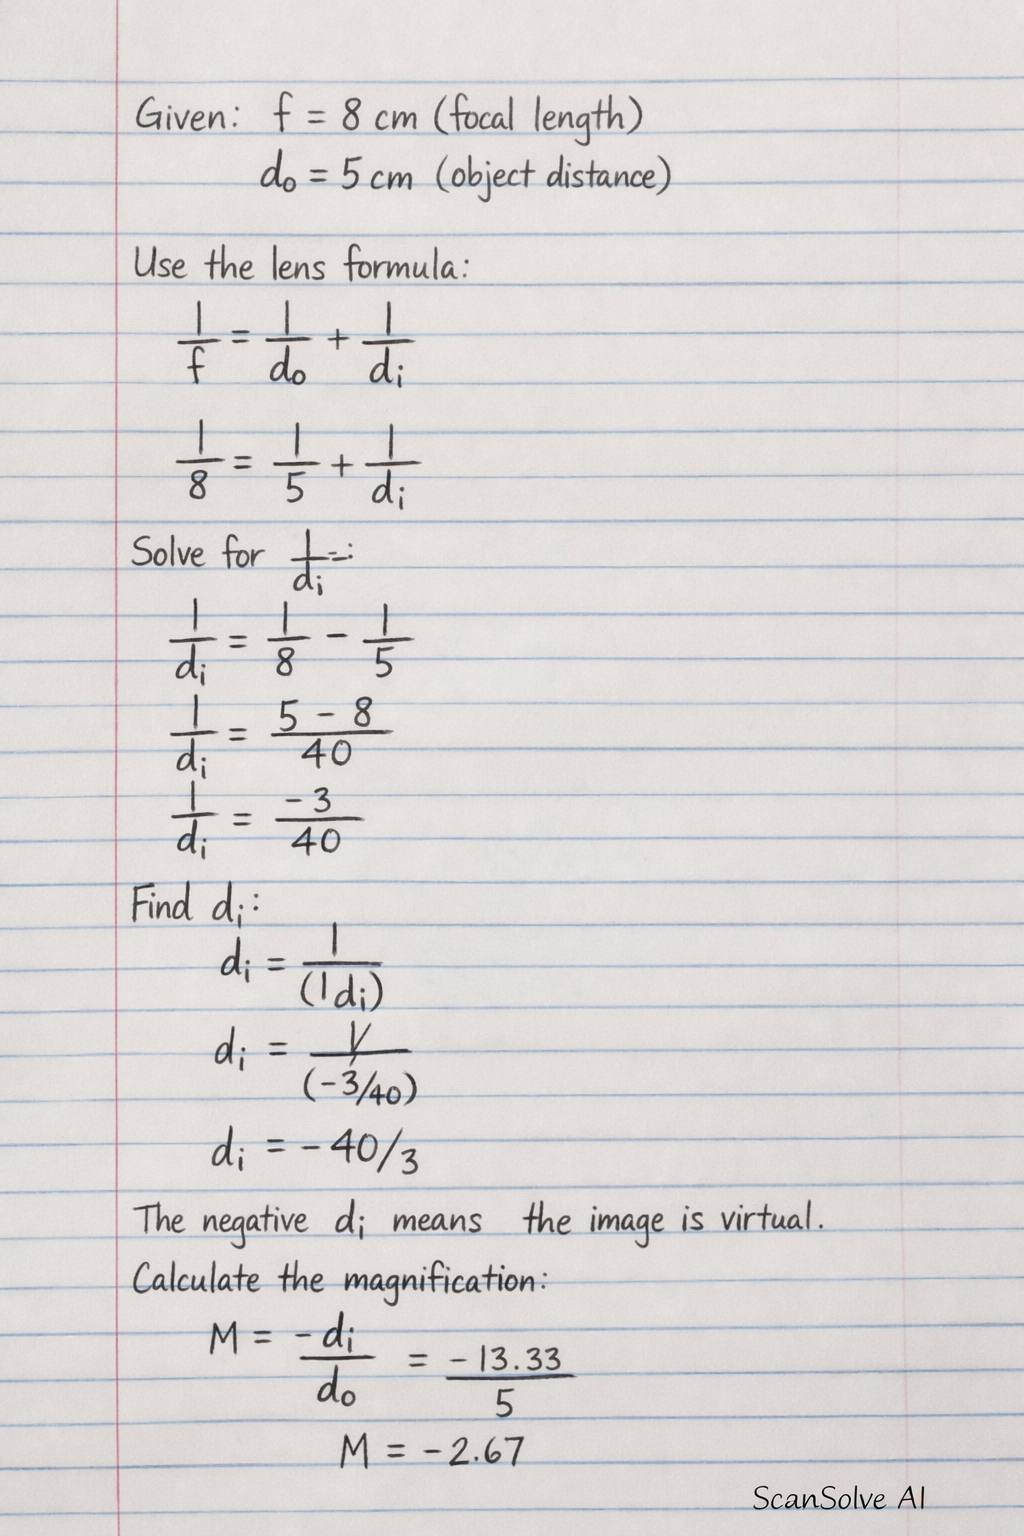 Given: f = 8 cm (focal length)
do = 5 cm (object distance)
Use the lens formula:
1/f = 1/do + 1/di
1/8 = 1/5 + 1/di
Solve for 1/di =:
1/di = 1/8 - 1/5
1/di = (5 - 8)/40
1/di = -3/40
Find di:
di = 1/(1di)
di = 1/(-3/40)
di = -40/3
The negative di means the image is virtual.
Calculate the magnification:
M = -di/do = -13.33/5
M = -2.67
ScanSolve AI